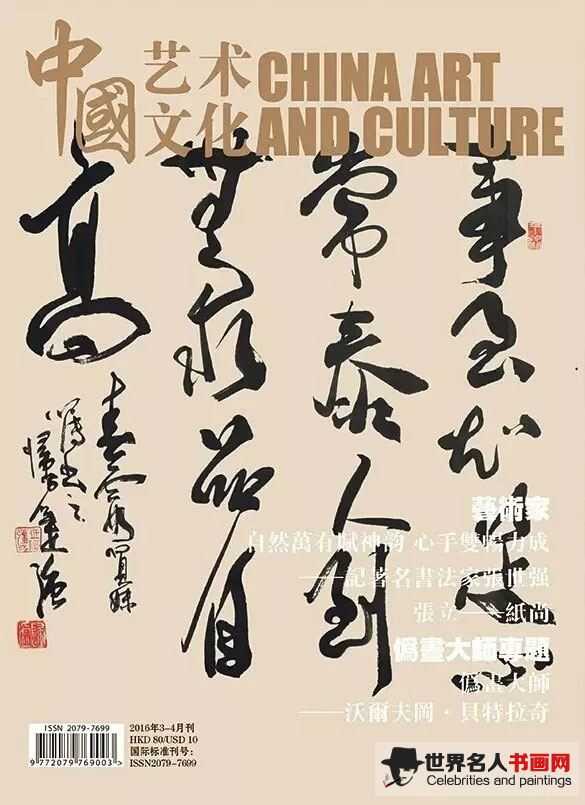 中國
艺术 CHINA ART
文化 AND CULTURE
事知足心
常泰人到
無求品自
高
藝術家
自然萬有賦神韵 心手雙暢力成
——記著名書法家張世强
張立——紙尚
僞畫大師專題
僞畫大師
——沃爾夫岡·貝特拉奇
ISSN 2079-7699
9 772079 769003 >
2016年3-4月刊
HKD 80/USD 10
国际标准刊号:
ISSN2079-7699
世界名人书画网
Celebrities and paintings